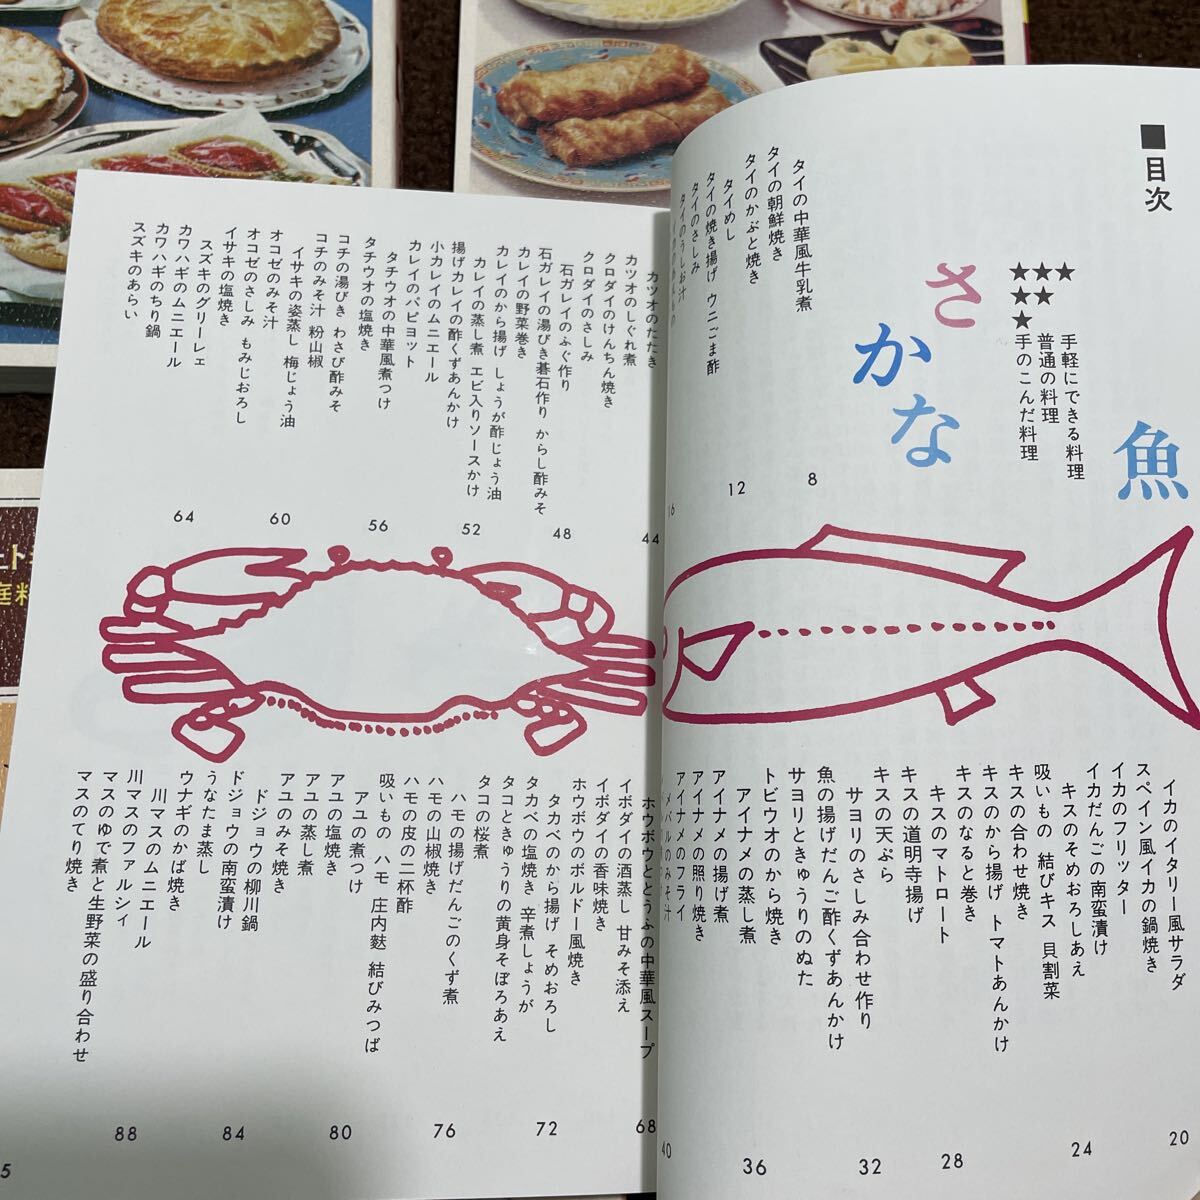 ■目次
さかな
魚
★★★ 手軽にできる料理
★★ 普通の料理
★ 手のこんだ料理
タイの中華風牛乳煮
タイの朝鮮焼き
タイのかぶと焼き
8
タイめし
タイの焼き揚げ ウニごま酢
タイのさしみ
12
タイのうしお汁
16
イカのイタリー風サラダ
スペイン風イカの鍋焼き
イカのフリッター
20
イカだんごの南蛮漬け
キスのそめおろしあえ
吸いもの 結びキス 貝割菜
24
キスの合わせ焼き
キスのから揚げ トマトあんかけ
キスのなると巻き
キスのマトロート
28
キスの道明寺揚げ
キスの天ぷら
サヨリのさしみ合わせ作り
32
魚の揚げだんご酢くずあんかけ
サヨリときゅうりのぬた
トビウオのから焼き
アイナメの蒸し煮
36
アイナメの揚げ煮
アイナメの照り焼き
アイナメのフライ
メバルのみそ汁
40
カツオのたたき
カツオのしぐれ煮
44
クロダイのけんちん焼き
クロダイのさしみ
石ガレイのふぐ作り
石ガレイの湯びき碁石作り からし酢みそ
48
カレイの野菜巻き
カレイのから揚げ しょうが酢じょう油
カレイの蒸し煮 エビ入りソースかけ
揚げカレイの酢くずあんかけ
52
小カレイのムニエール
カレイのパピヨット
タチウオの中華風煮つけ
タチウオの塩焼き
56
コチの湯びき わさび酢みそ
コチのみそ汁 粉山椒
イサキの姿蒸し 梅じょう油
オコゼのみそ汁
60
オコゼのさしみ もみじおろし
イサキの塩焼き
スズキのグリーエ
カワハギのムニエール
64
カワハギのちり鍋
スズキのあらい
ホウボウととうふの中華風スープ
68
イボダイの酒蒸し 甘みそ添え
イボダイの香味焼き
ホウボウのボルドー風焼き
タカベのから揚げ そめおろし
72
タカベの塩焼き 辛煮しょうが
タコときゅうりの黄身そぼろあえ
タコの桜煮
ハモの揚げだんごのくず煮
76
ハモの山椒焼き
ハモの皮の二杯酢
吸いもの ハモ 庄内麩 結びみつば
アユの煮つけ
80
アユの塩焼き
アユの蒸し煮
アユのみそ焼き
ドジョウの柳川鍋
84
ドジョウの南蛮漬け
うなたま蒸し
ウナギのかば焼き
川マスのムニエール
88
川マスのファルシィ
マスのゆで煮と生野菜の盛り合わせ
マスのてり焼き
5